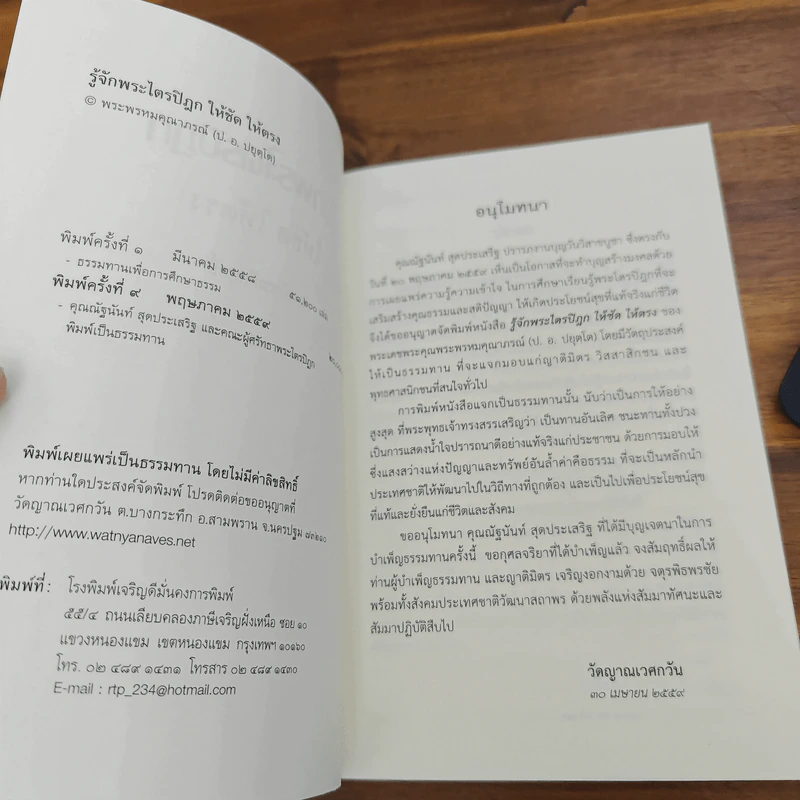 รู้จักพระไตรปิฎก ให้ชัด ให้ตรง
© พระพรหมคุณาภรณ์ (ป. อ. ปยุตฺโต)
พิมพ์ครั้งที่ ๑ มีนาคม ๒๕๕๘ ๕๑,๒๐๐ เล่ม
- ธรรมทานเพื่อการศึกษาธรรม
พิมพ์ครั้งที่ ๙ พฤษภาคม ๒๕๕๙
- คุณณัฐนันท์ สุดประเสริฐ และคณะผู้ศรัทธาพระไตรปิฎก
พิมพ์เป็นธรรมทาน
พิมพ์เผยแพร่เป็นธรรมทาน โดยไม่มีค่าลิขสิทธิ์
หากท่านใดประสงค์จัดพิมพ์ โปรดติดต่อขออนุญาตที่
วัดญาณเวศกวัน ต.บางกระทึก อ.สามพราน จ.นครปฐม ๗๓๒๑๐
http://www.watnyanaves.net
พิมพ์ที่ : โรงพิมพ์เจริญดีมั่นคงการพิมพ์
๕๕/๔ ถนนเลียบคลองภาษีเจริญฝั่งเหนือ ซอย ๑๐
แขวงหนองแขม เขตหนองแขม กรุงเทพฯ ๑๐๑๖๐
โทร. ๐๒ ๔๘๙ ๑๔๓๑ โทรสาร ๐๒ ๔๘๙ ๑๔๓๐
E-mail : rtp_234@hotmail.com
อนุโมทนา
คุณณัฐนันท์ สุดประเสริฐ ปรารภงานบุญวันวิสาขบูชา ซึ่งตรงกับ
วันที่ ๒๐ พฤษภาคม ๒๕๕๙ เห็นเป็นโอกาสที่จะทำบุญสร้างมงคลด้วย
การเผยแพร่ความรู้ความเข้าใจ ในการศึกษาเรียนรู้พระไตรปิฎกที่จะ
เสริมสร้างคุณธรรมและสติปัญญา ให้เกิดประโยชน์สุขที่แท้จริงแก่ชีวิต
จึงได้ขออนุญาตจัดพิมพ์หนังสือ รู้จักพระไตรปิฎก ให้ชัด ให้ตรง ของ
พระเดชพระคุณพระพรหมคุณาภรณ์ (ป. อ. ปยุตฺโต) โดยมีวัตถุประสงค์
ให้เป็นธรรมทาน ที่จะแจกมอบแก่ญาติมิตร วิสสาสิกชน และ
พุทธศาสนิกชนที่สนใจทั่วไป
การพิมพ์หนังสือแจกเป็นธรรมทานนั้น นับว่าเป็นการให้อย่าง
สูงสุด ที่พระพุทธเจ้าทรงสรรเสริญว่า เป็นทานอันเลิศ ชนะทานทั้งปวง
เป็นการแสดงน้ำใจปรารถนาดีอย่างแท้จริงแก่ประชาชน ด้วยการมอบให้
ซึ่งแสงสว่างแห่งปัญญาและทรัพย์อันล้ำค่าคือธรรม ที่จะเป็นหลักนำ
ประเทศชาติให้พัฒนาไปในวิถีทางที่ถูกต้อง และเป็นไปเพื่อประโยชน์สุข
ที่แท้และยั่งยืนแก่ชีวิตและสังคม
ขออนุโมทนา คุณณัฐนันท์ สุดประเสริฐ ที่ได้มีบุญเจตนาในการ
บำเพ็ญธรรมทานครั้งนี้ ขอกุศลจริยาที่ได้บำเพ็ญแล้ว จงสัมฤทธิ์ผลให้
ท่านผู้บำเพ็ญธรรมทาน และญาติมิตร เจริญงอกงามด้วย จตุรพิธพรชัย
พร้อมทั้งสังคมประเทศชาติวัฒนาสถาพร ด้วยพลังแห่งสัมมาทัศนะและ
สัมมาปฏิบัติสืบไป
วัดญาณเวศกวัน
๓๐ เมษายน ๒๕๕๙